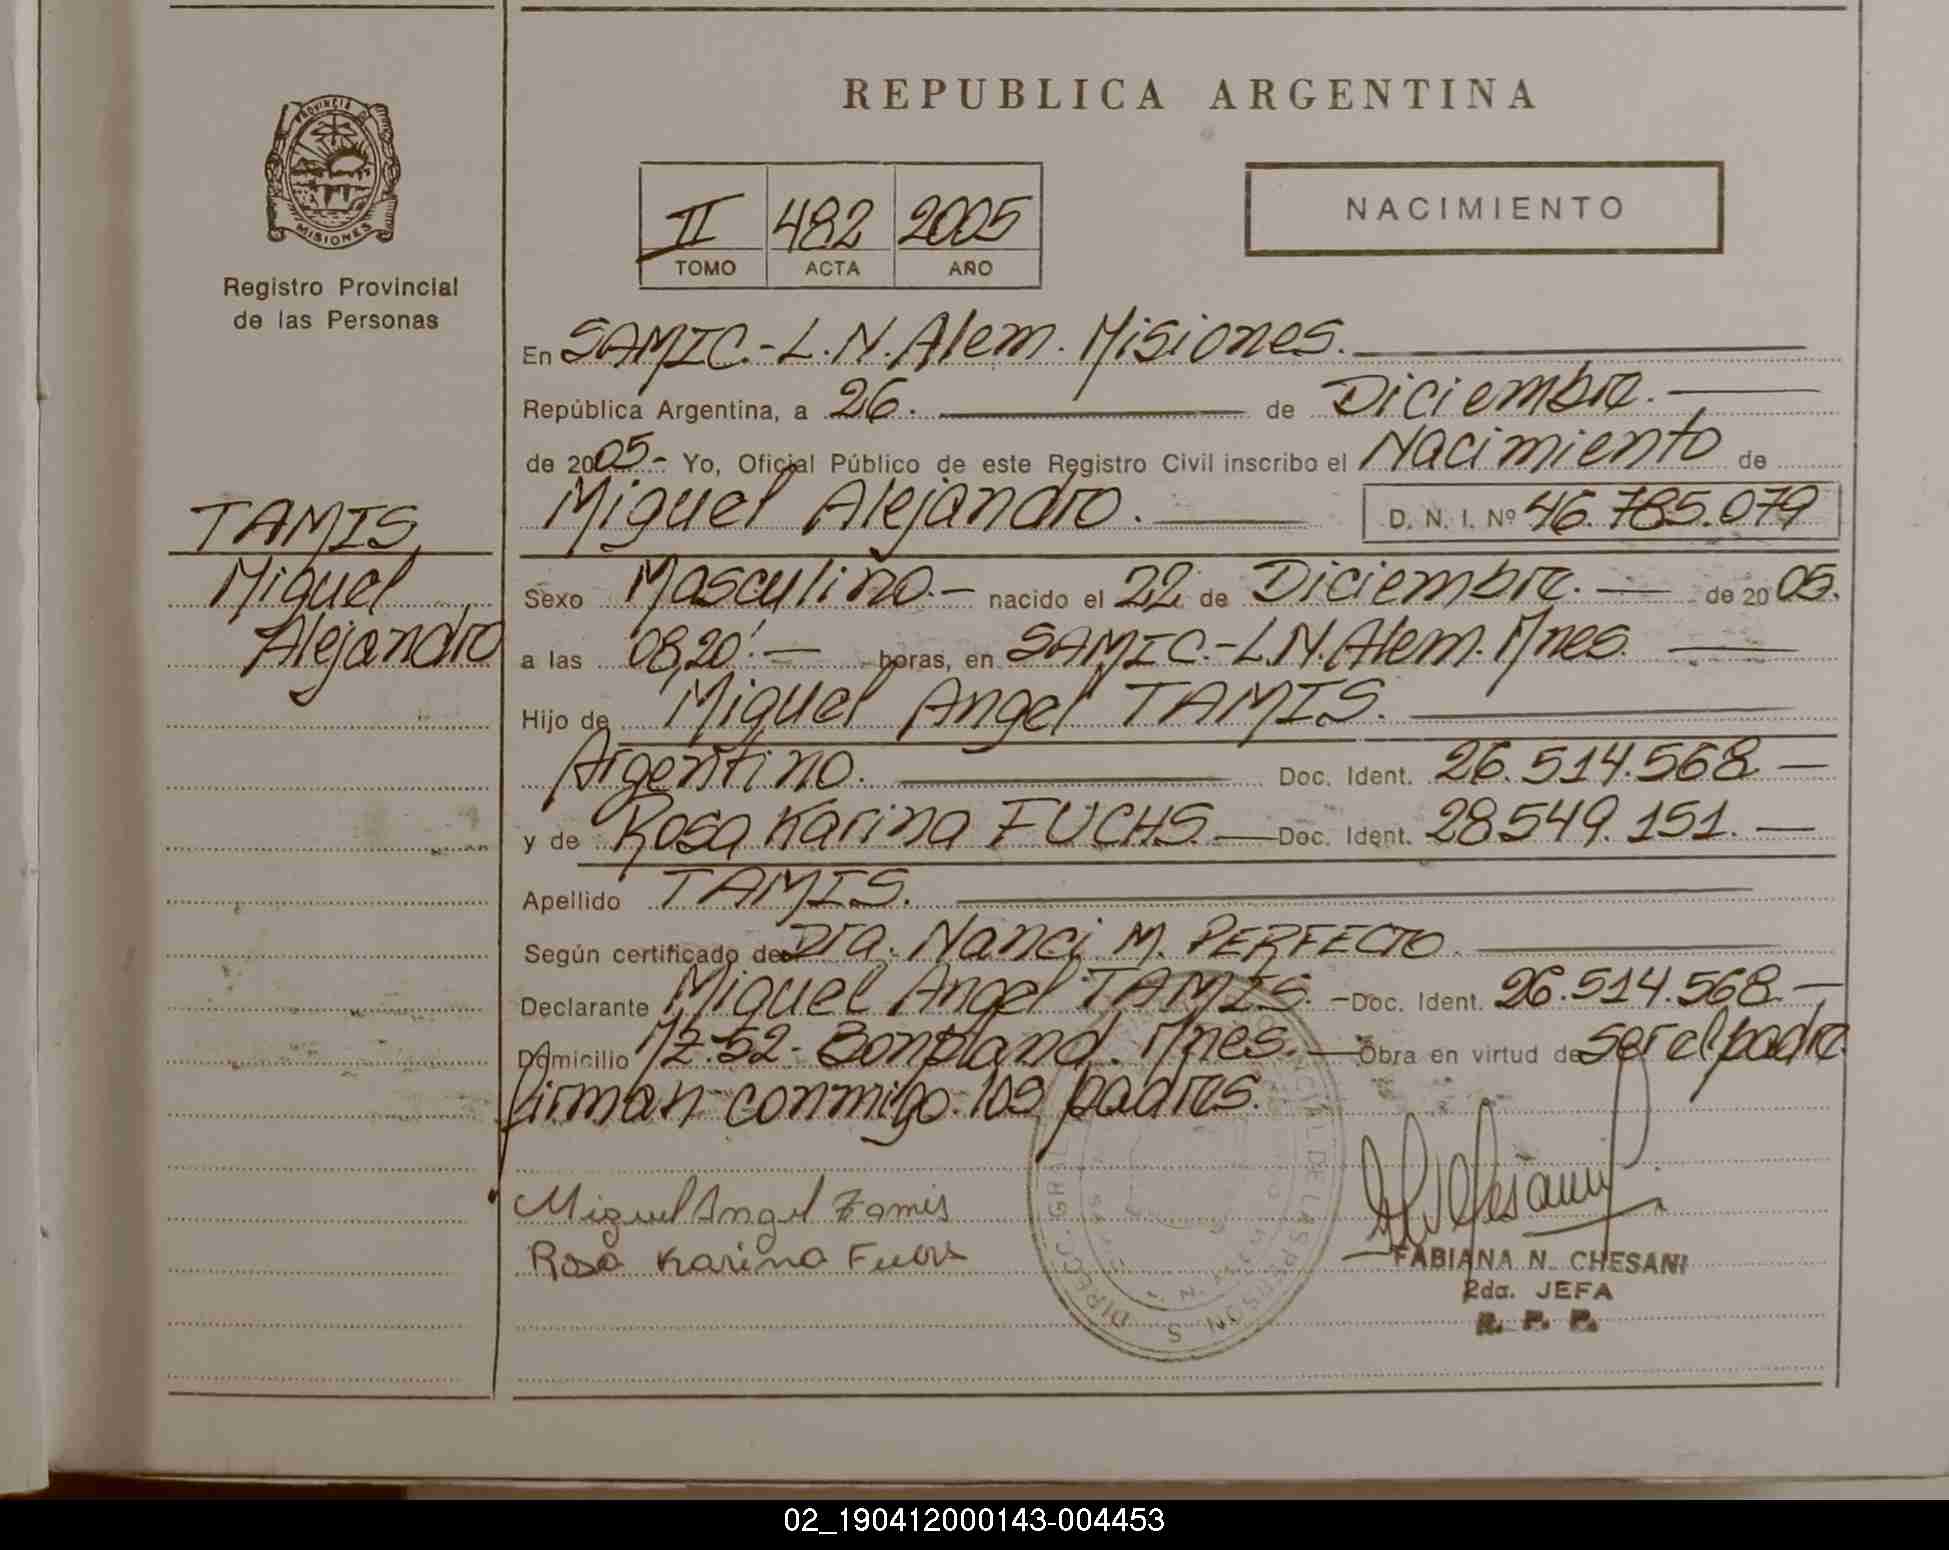 REPUBLICA ARGENTINA
PROVINCIA DE
MISIONES
Registro Provincial
de las Personas
II 482 2005
TOMO ACTA AÑO
NACIMIENTO
En SAMIC.-L.N.Alem. Misiones.
República Argentina, a 26. de Diciembre.
de 2005- Yo, Oficial Público de este Registro Civil inscribo el Nacimiento de
Miguel Alejandro. D. N. I. Nº 46.785.079
TAMIS,
Miguel
Alejandro
Sexo Masculino.- nacido el 22 de Diciembre. de 2005.
a las 08,20'.- horas, en SAMIC.-L.N.Alem. Mnes.
Hijo de Miguel Angel TAMIS.
Argentino. Doc. Ident. 26.514.568.-
y de Rosa Karina FUCHS.- Doc. Ident. 28549.151.-
Apellido TAMIS.
Según certificado de Dra. Nanci M. PERFECTO.
Declarante Miguel Angel TAMIS.- Doc. Ident. 26.514.568.-
Domicilio Mz.52- Bonpland. Mnes.- Obra en virtud de ser el padre
firman conmigo los padres.
Miguel Angel Tamis
Rosa Karina Fuchs
FABIANA N. CHESANI
2da. JEFA
R. P. P.
02_190412000143-004453